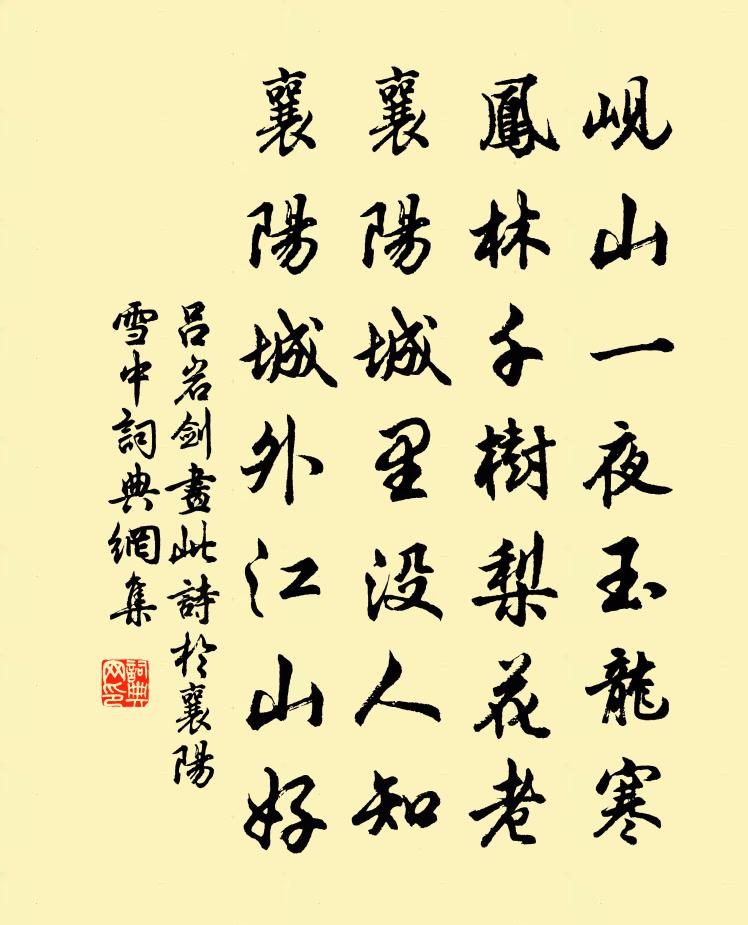 峴山一夜玉龍寒
鳳林千樹梨花老
襄陽城里没人知
襄陽城外江山好
吕岩劍畫此詩於襄陽
雪中詞典網集
詞典网印